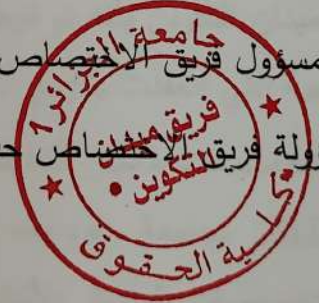 مسؤول فريق الاختصاص
ولة فريق الاختصاص ح
جامعة الجزائر 1
فريق ميدان
التكوين
كلية الحقوق